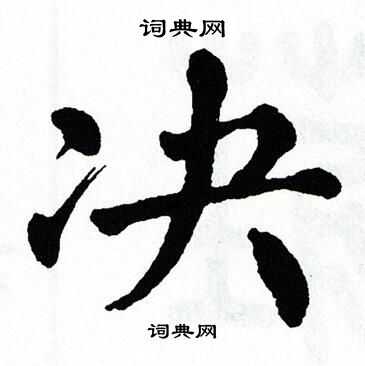 词典网
决
词典网